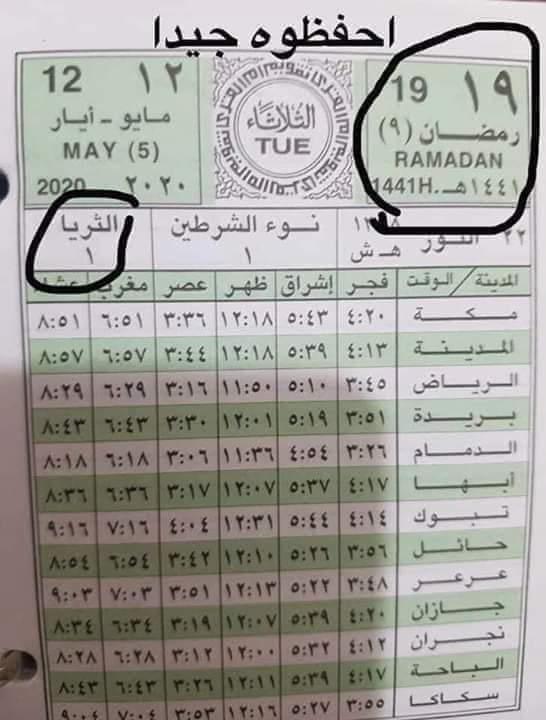 احفظوه جيدا
١٩ 19
رمضان (٩)
RAMADAN
1441H. ١٤٤١هـ
الثلاثاء
TUE
١٢ 12
مايو - أيار
MAY (5)
٢٠٢٠ 2020
٢٢ الثور هـ ش
نوء الشرطين ١
الثريا ١
المدينة / الوقت فجر إشراق ظهر عصر مغرب
مكة ٤:٢٠ ٥:٤٣ ١٢:١٨ ٣:٣٦ ٦:٥١ ٨:٥١
المدينة ٤:١٣ ٥:٣٩ ١٢:١٨ ٣:٤٤ ٦:٥٧ ٨:٥٧
الرياض ٣:٤٥ ٥:١٠ ١١:٥٠ ٣:١٦ ٦:٢٩ ٨:٢٩
بريدة ٣:٥١ ٥:١٩ ١٢:٠١ ٣:٣٠ ٦:٤٣ ٨:٤٣
الدمام ٣:٢٦ ٤:٥٤ ١١:٣٦ ٣:٠٦ ٦:١٨ ٨:١٨
أبها ٤:١٧ ٥:٣٧ ١٢:٠٧ ٣:١٧ ٦:٣٦ ٨:٣٦
تبوك ٤:١٤ ٥:٤٤ ١٢:٣١ ٤:٠٤ ٧:١٦ ٩:١٦
حائل ٣:٥٦ ٥:٢٦ ١٢:١٠ ٣:٤٢ ٦:٥٤ ٨:٥٤
عرعر ٣:٤٨ ٥:٢٢ ١٢:١٣ ٣:٥١ ٧:٠٣ ٩:٠٣
جازان ٤:٢٠ ٥:٣٩ ١٢:٠٧ ٣:١٩ ٦:٣٤ ٨:٣٤
نجران ٤:١٢ ٥:٣٢ ١٢:٠٠ ٣:١٢ ٦:٢٨ ٨:٢٨
الباحة ٤:١٧ ٥:٣٩ ١٢:١١ ٣:٢٦ ٦:٤٣ ٨:٤٣
سكاكا ٣:٥٥ ٥:٢٧ ١٢:١٦ ٣:٥٣ ٧:٠٤ ٩:٠٤